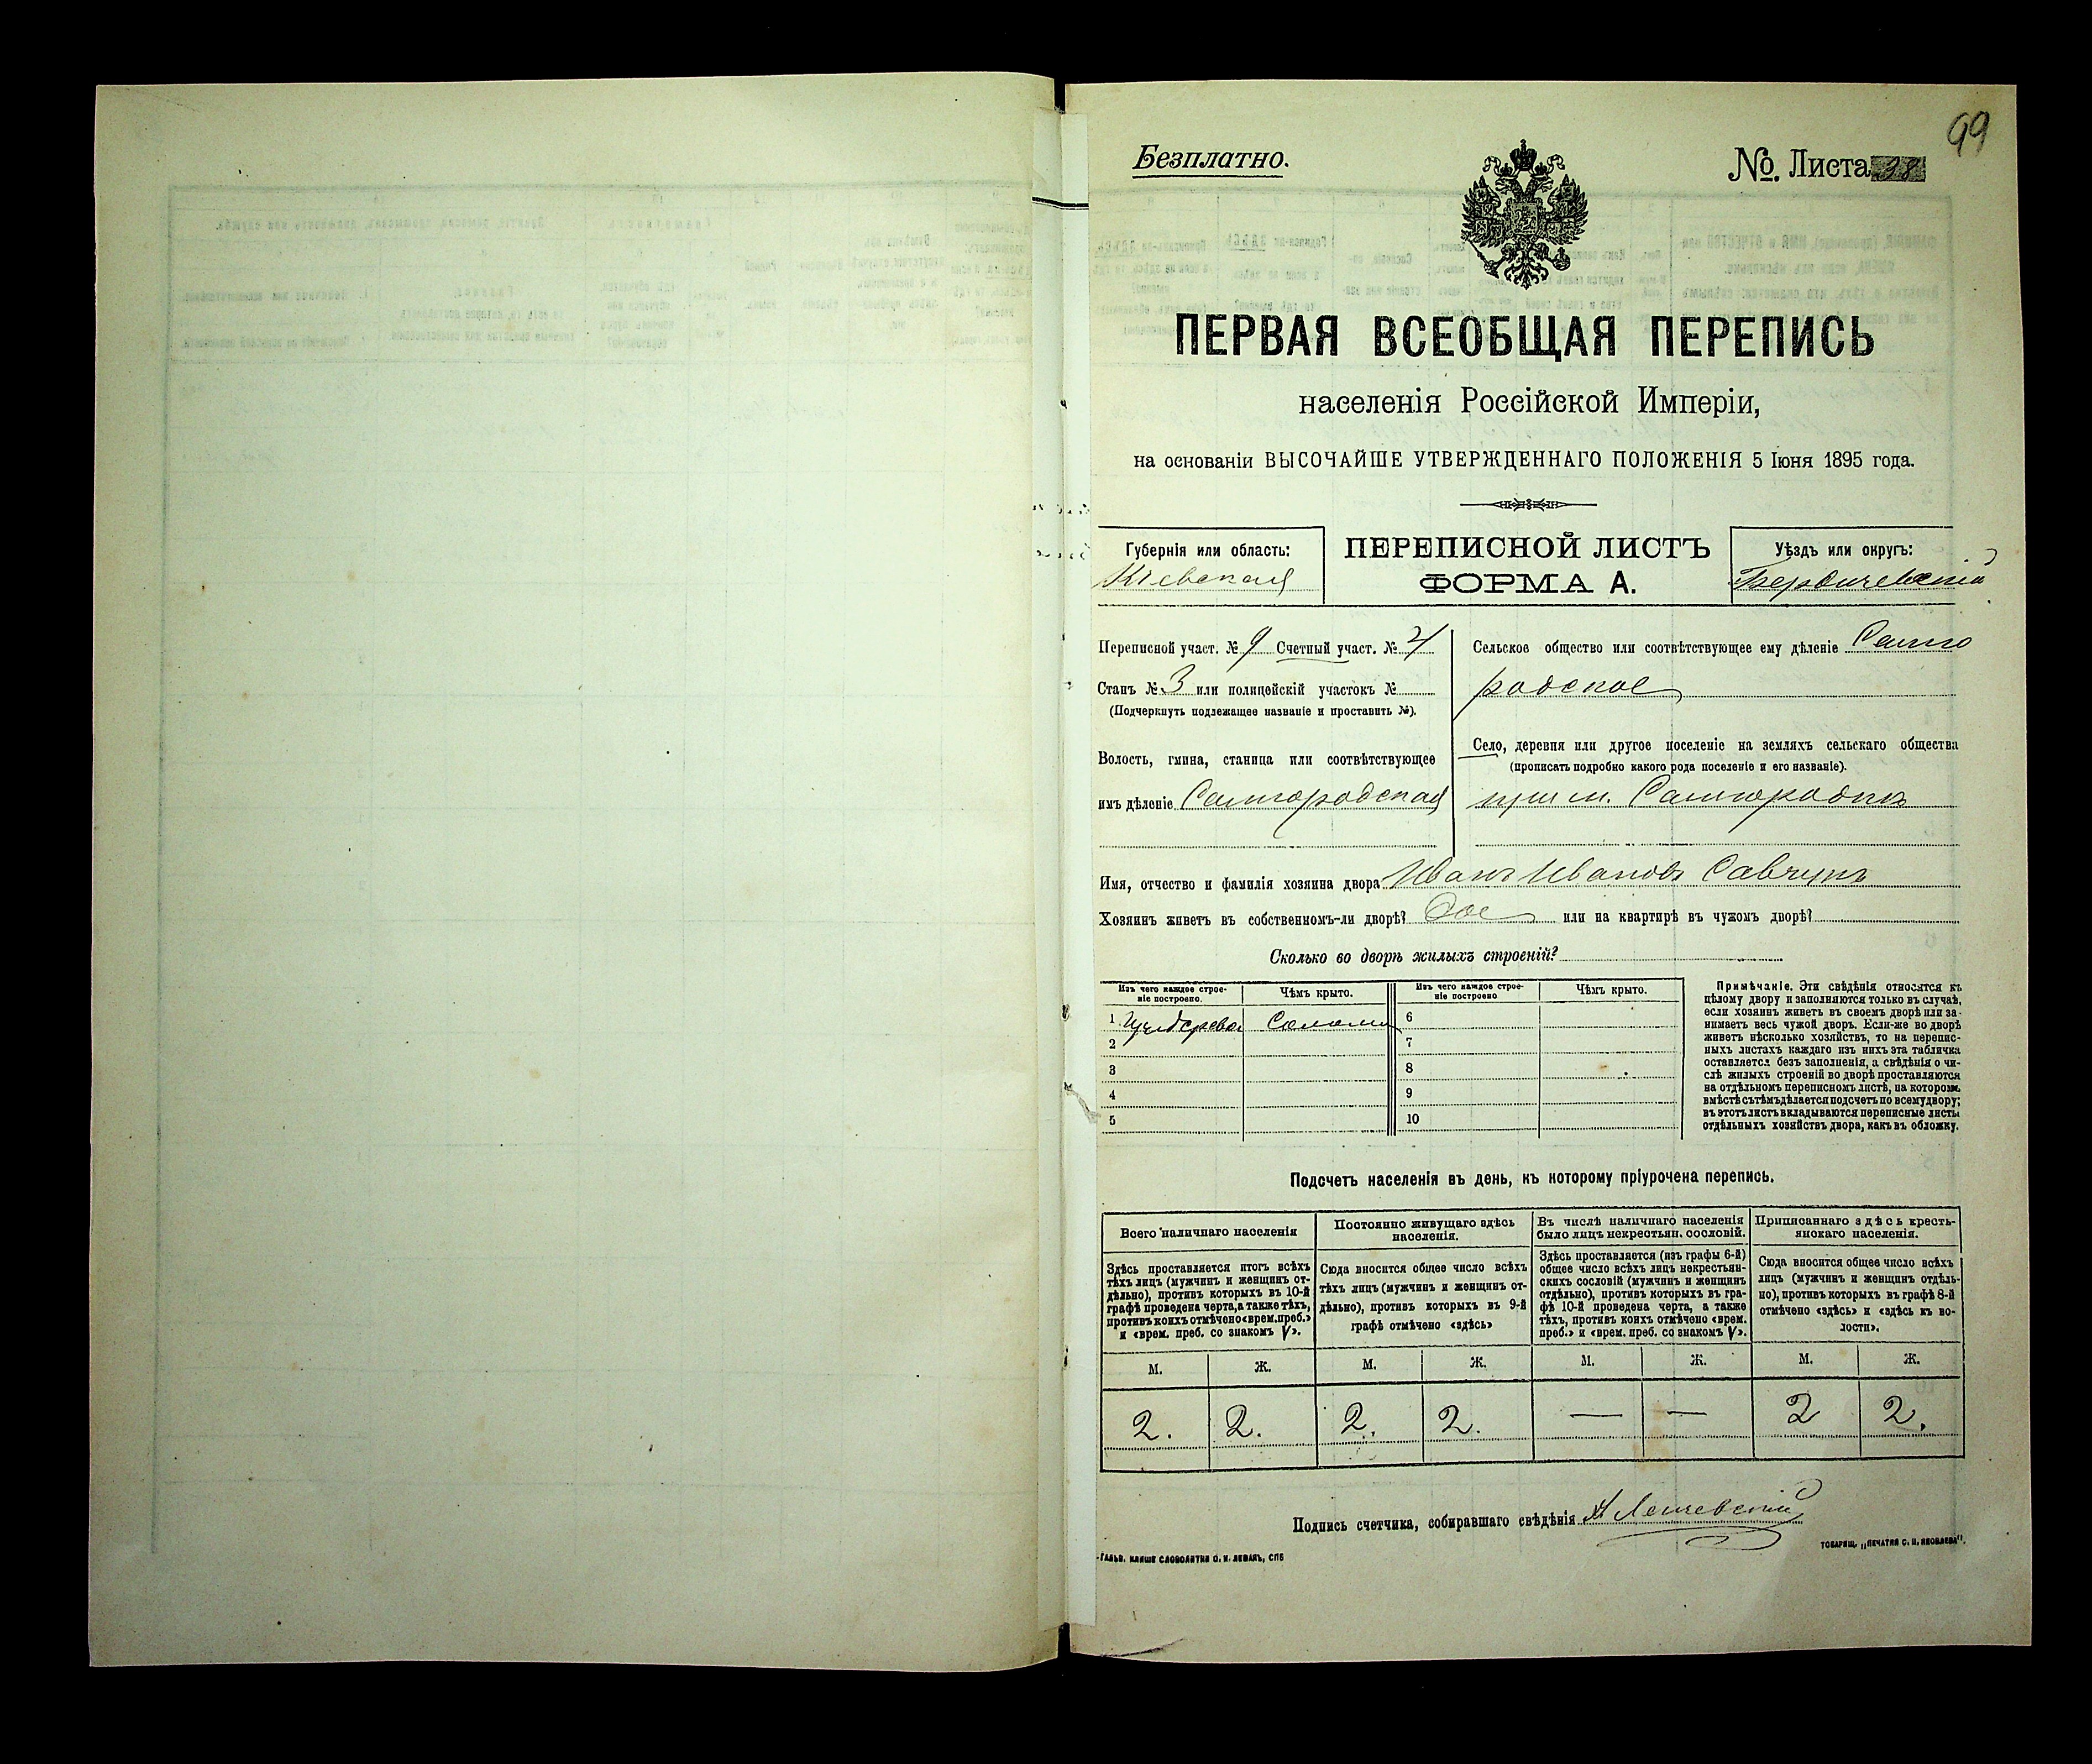 99
Безплатно.
№. Листа 98
ПЕРВАЯ ВСЕОБЩАЯ ПЕРЕПИСЬ
населенія Россійской Имперіи,
на основаніи ВЫСОЧАЙШЕ УТВЕРЖДЕННАГО ПОЛОЖЕНІЯ 5 Іюня 1895 года.
Губернія или область:
Кіевская
ПЕРЕПИСНОЙ ЛИСТЪ
ФОРМА А.
Уѣздъ или округъ:
Бердичевскій
Переписной участ. № 9 Счетный участ. № 4
Станъ № 3 или полицейскій участокъ №
(Подчеркнуть подлежащее названіе и проставить №).
Волость, гмина, станица или соотвѣтствующее
имъ дѣленіе Самгородская
Сельское общество или соотвѣтствующее ему дѣленіе Самго
родское
Село, деревня или другое поселеніе на земляхъ сельскаго общества
(прописать подробно какого рода поселеніе и его названіе).
при м. Самгородкѣ
Имя, отчество и фамилія хозяина двора Иванъ Ивановъ Савчукъ
Хозяинъ живетъ въ собственномъ-ли дворѣ? или на квартирѣ въ чужомъ дворѣ?
Сколько во дворѣ жилыхъ строеній?
Изъ чего каждое строе-
ніе построено.
Чѣмъ крыто.
Изъ чего каждое строе-
ніе построено
Чѣмъ крыто.
1 Изъ дерева Солома 6
2 7
3 8
4 9
5 10
Примѣчаніе. Эти свѣдѣнія относятся къ
цѣлому двору и заполняются только въ случаѣ,
если хозяинъ живетъ въ своемъ дворѣ или за-
нимаетъ весь чужой дворъ. Если-же во дворѣ
живетъ нѣсколько хозяйствъ, то на перепис-
ныхъ листахъ каждаго изъ нихъ эта табличка
оставляется безъ заполненія, а свѣдѣнія о чи-
слѣ жилыхъ строеній во дворѣ проставляются
на отдѣльномъ переписномъ листѣ, на которомъ
вмѣстѣ съ тѣмъ дѣлается подсчетъ по всему двору;
въ этотъ листъ вкладываются переписные листы
отдѣльныхъ хозяйствъ двора, какъ въ обложку.
Подсчетъ населенія въ день, къ которому пріурочена перепись.
Всего наличнаго населенія
Здѣсь проставляется итогъ всѣхъ
тѣхъ лицъ (мужчинъ и женщинъ от-
дѣльно), противъ которыхъ въ 10-й
графѣ проведена черта, а также тѣхъ,
противъ коихъ отмѣчено «врем. преб.»
и «врем. преб. со знакомъ V».
Постоянно живущаго здѣсь
населенія.
Сюда вносится общее число всѣхъ
тѣхъ лицъ (мужчинъ и женщинъ от-
дѣльно), противъ которыхъ въ 9-й
графѣ отмѣчено «здѣсь»
Въ числѣ наличнаго населенія
было лицъ некрестьян. сословій.
Здѣсь проставляется (изъ графы 6-й)
общее число всѣхъ лицъ некрестьян-
скихъ сословій (мужчинъ и женщинъ
отдѣльно), противъ которыхъ въ гра-
фѣ 10-й проведена черта, а также
тѣхъ, противъ коихъ отмѣчено «врем.
преб.» и «врем. преб. со знакомъ V».
Приписаннаго здѣсь кресть-
янскаго населенія.
Сюда вносится общее число всѣхъ
лицъ (мужчинъ и женщинъ отдѣль-
но), противъ которыхъ въ графѣ 8-й
отмѣчено «здѣсь» и «здѣсь къ во-
лости».
М. Ж. М. Ж. М. Ж. М. Ж.
2. 2. 2. 2. — — 2 2.
Подпись счетчика, собиравшаго свѣдѣнія
ГАЛЬВ. КЛИШЕ СЛОВОЛИТНИ О. И. ЛЕМАНЪ, СПБ
ТОВАРИЩ. „ПЕЧАТНЯ С. П. ЯКОВЛЕВА".